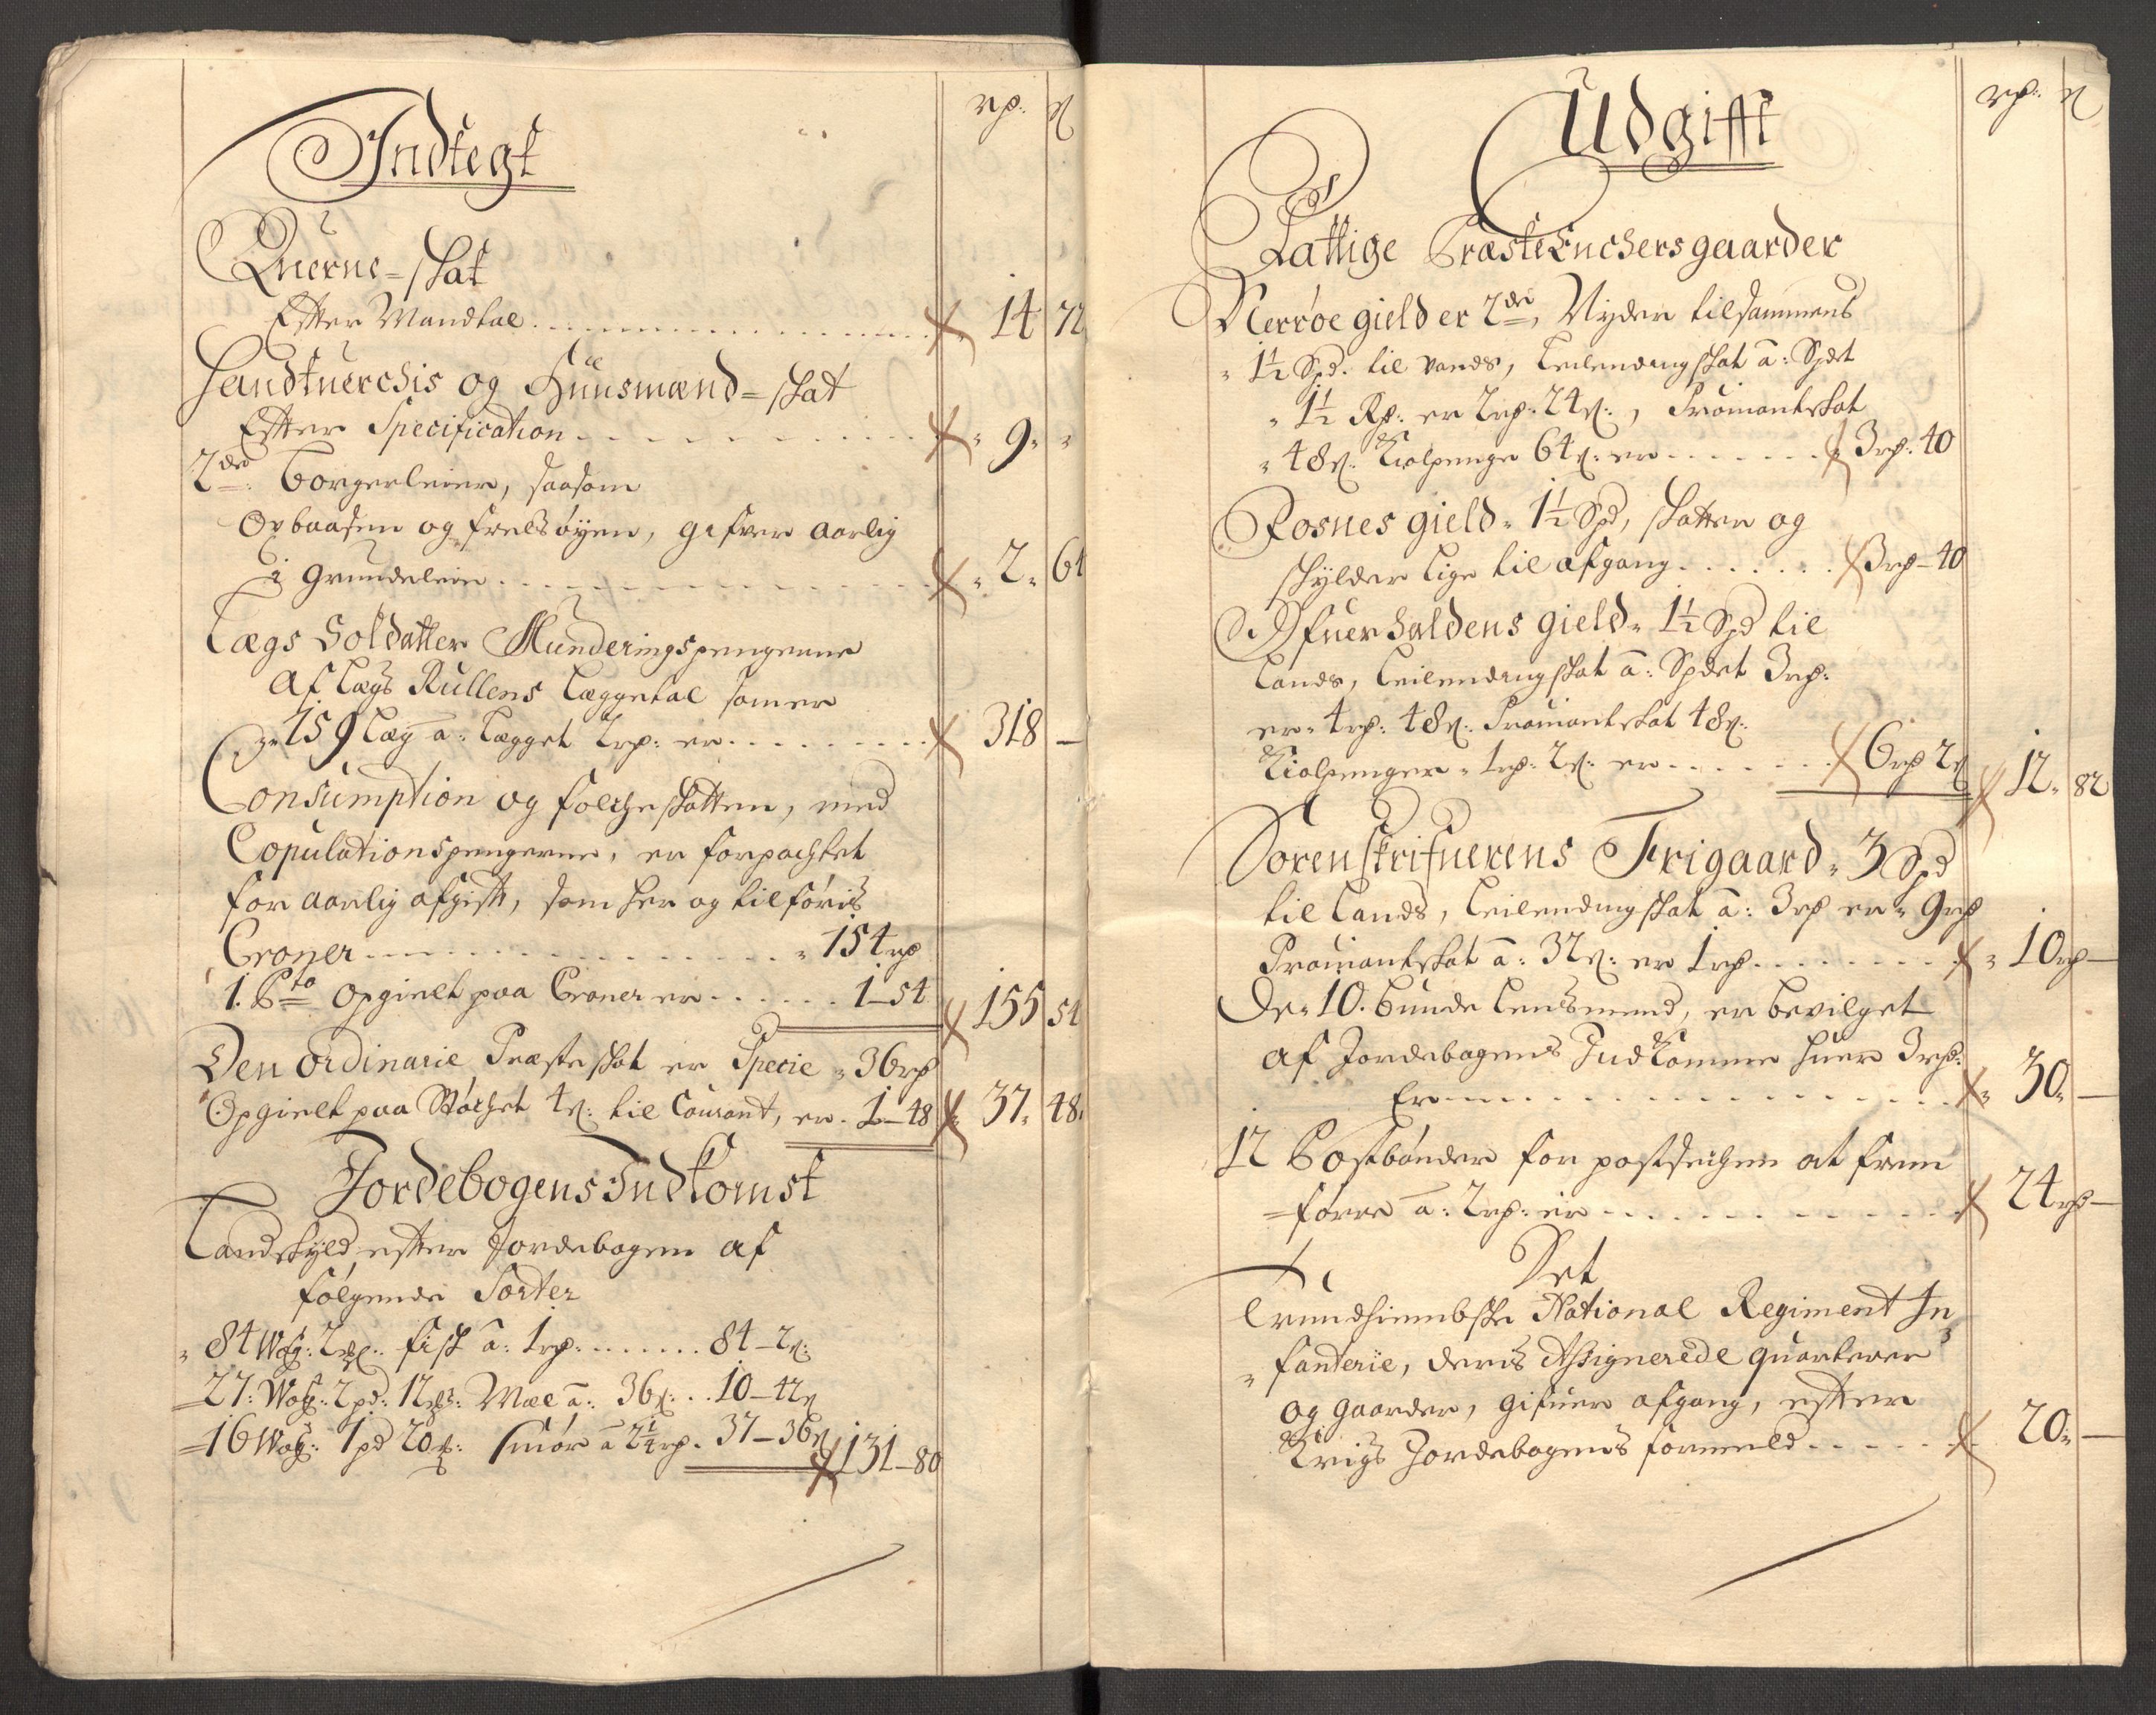 Indtegt
rp: ß
Querne-skat
Efter Mandtal 14 72
Handtuerchis og Huusmænd-skat
Efter Specification 9
2de Borgerleier, saasom
Oxbaasen og frelsøyen, gifver aarlig
i Grundeleie 2 64
Lægs Soldatter Munderingspengerne
af Lægs Rullens Læggetal som er
159 Læg â: Lægget 2rp: er 318 -
Consumption og folcheskatten, med
Copulationspengerne, er forpachtet
for aarlig afgift, som her og tilføris
Croner 154rp
1. Pto opgielt paa Croner er 1-54 155 54
Den ordinarie Præsteskat er Specie 36rp
Opgielt paa Støchet 4ß: til Courant, er 1-48 37 48
Jordebogens Indkomst
Landskyld efter Jordebogen af
følgende Sorter
84 Wog: 2 fisk â: 1rp: 84-2ß:
27: Wog: 2pd: 12 Mæl â: 36ß: 10-42ß
16 Wog: 1pd 20 smør â 2¼rp. 37-36ß 131-80
Udgifft
rp: ß
Fattige Præsteenchers gaarder
Nerrøe gield er 2de, Nyder tilsammens
1½ Spd. til vands, Leilendingskat â: Spdet
1½ Rp: er 2rp: 24ß:, Proviantskat
48ß: Kiolpenge 64ß: er 3rp: 40
Fosnes gield 1½ Spd, skatter og
skylder lige til afgang 3rp-40
Ofuerhaldens gield 1½ Spd til
Lands, Leilendingskat â: Spdet 3rp:
er 4rp: 48ß: Proviantskat 48ß:
Kiolpenger 1rp: 2ß: er 6rp 2ß 12 82
Sorenskrifuerens Frigaard 3 Spd
til Lands, Leilendingskat â: 3rp er 9rp
Proviantskat â: 32ß: er 1rp 10rp -
De 10. Bunde Lensmend, er bevilget
af Jordebogens Indkomme huer 3rp:
Er 30 -
12 Postbønder for postsechen at frem
=førre â: 2rp: er 24rp -
Det
Trundhiembske National Regiment In
fanterie, deris Assignerede quarterer
og gaarder, gifuer afgang, efter
Krigs Jordebogens formeld 20 -